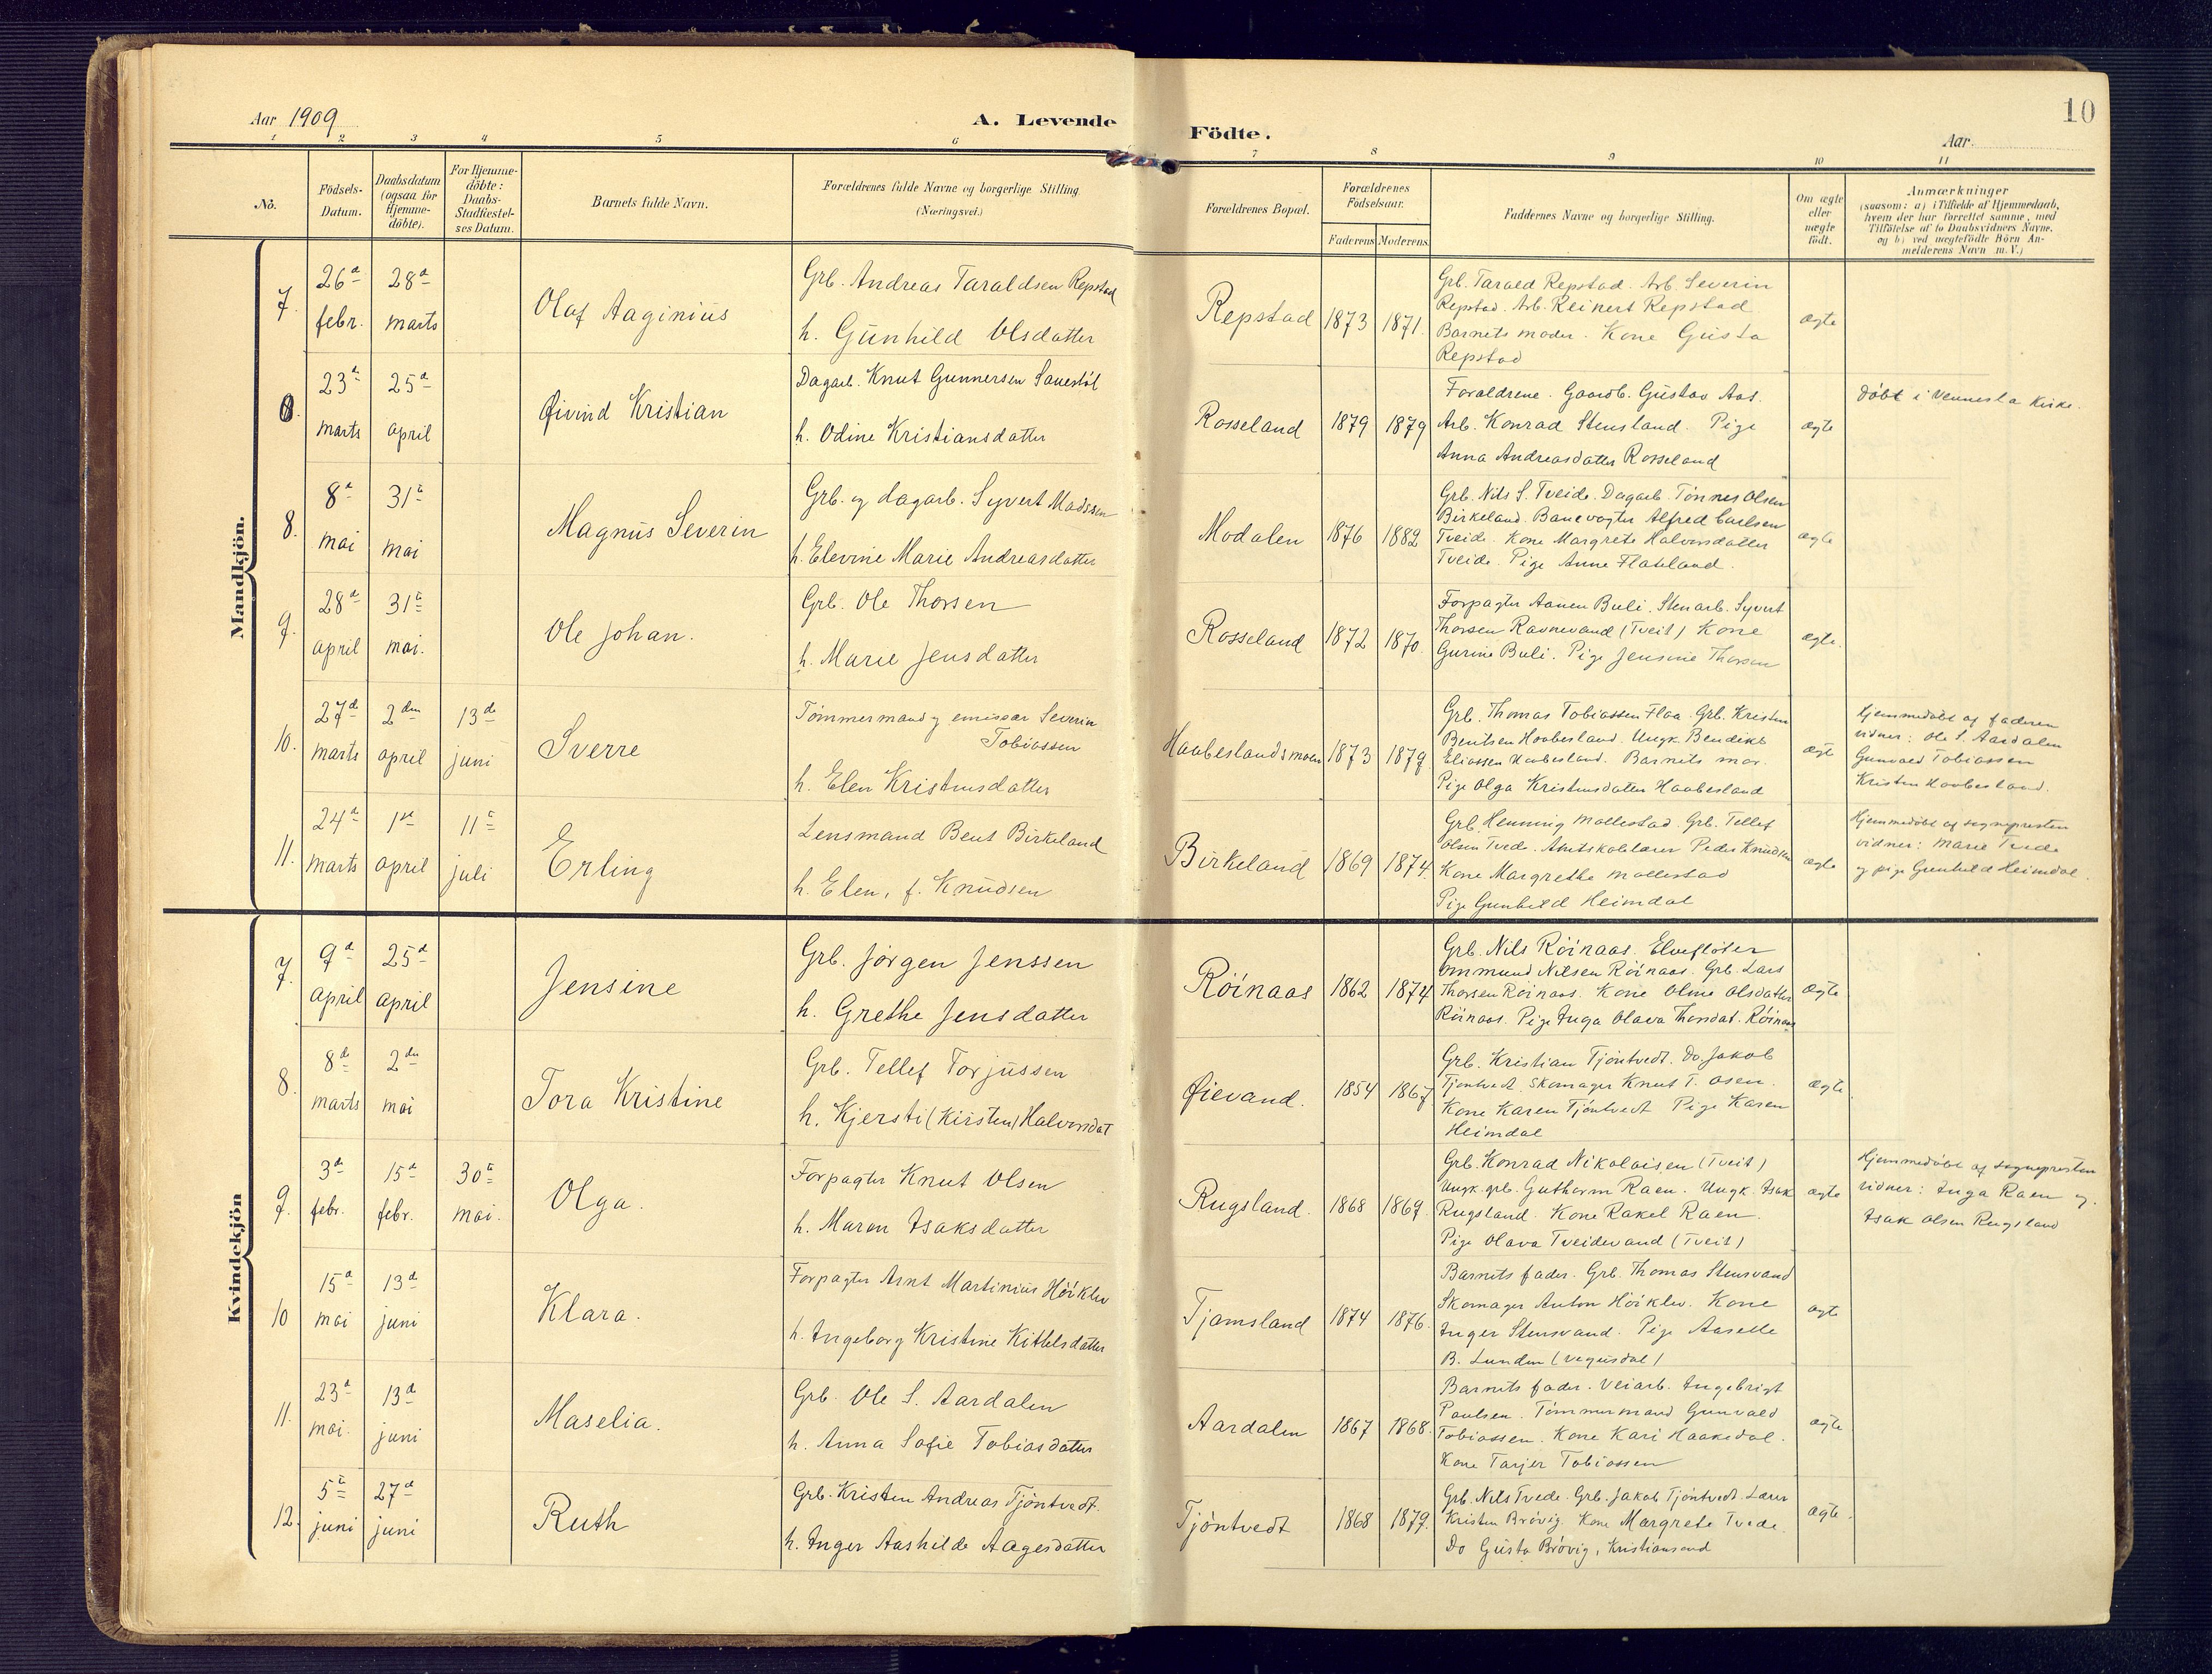 10
Aar 1909
A. Levende
Födte.
Aar
1 2 3 4 5 6 7 8 9 10 11
No.
Födsels-Datum.
Daabsdatum (ogsaa for Hjemme-döbte).
For Hjemme-döbte: Daabs-Stadfæstel-ses Datum.
Barnets fulde Navn.
Forældrenes fulde Navne og borgerlige Stilling.
(Næringsvei.)
Forældrenes Bopæl.
Forældrenes Födselsaar.
Faderens Moderens
Faddernes Navne og borgerlige Stilling.
Om ægte eller uægte födt.
Anmærkninger
(saasom: a) i Tilfælde af Hjemmedaab,
hvem der har forrettet samme, med
Tilföielse af to Daabsvidners Navne,
og b) ved uægtefödte Börn An-
melderens Navn m. V.)
Mandkjön.
7. 26de febr. 28de marts
Olaf Aaginius
Grb. Andreas Taraldsen Repstad
h. Gunhild Olsdatter
Repstad 1873 1871.
Grb. Tarald Repstad. Arb. Severin
Repstad. Arb. Reinert Repstad
Barnets moder. Kone Gusta
Repstad
ægte
23de marts 25de april
Øivind Kristian
Dagarb. Knut Gunnersen
h. Odine Kristiansdatter
Rosseland 1879 1879
Forældrene. Gaardb. Gustav Aas.
Arb. Konrad Stensland. Pige
Anna Andreasdatter Rosseland
ægte
døbt i Vennesla Kirke.
8. 8de mai 31te mai
Magnus Severin
Grb. og dagarb. Syvert Madssen
h. Elevine Marie Andreasdatter
Modalen 1876 1882
Grb. Nils S. Tveide. Dagarb. Tönnes Olsen
Birkeland. Banevogter Alfred Carlsen
Tveide. Kone Margrete Halvorsdatter
Tveide. Pige Anne Flakeland.
ægte
9. 28de april 31te mai.
Ole Johan.
Grb. Ole Thorsen
h. Marie Jensdatter
Rosseland 1872 1870
Forpagter Aanen Buli. Stenarb. Syvert
Thorsen Ravnevand (Tveit) Kone
Gurine Buli. Pige Jensine Thorsen
ægte.
10. 27de marts 2den april 13de juni
Sverre
Tömmermand og emissær Severin
Tobiassen
h. Elen Kristensdatter
Haabeslandsmoen 1873 1879
Grb. Thomas Tobiassen Flaa. Grb. Kristen
Bentsen Haabesland. Ungk. Bendikt
Eliassen Haabesland. Barnets mor.
Pige Olga Kristensdatter Haabesland
ægte
Hjemmedøbt af faderen
vidner: Ole S. Aardalen
Gunvald Tobiassen
Kristen Haabesland.
11. 24de marts 1ste april 11te juli
Erling
Lensmand Bent Birkeland
h. Elen, f. Knudsen
Birkeland 1869 1874.
Grb. Henning Mollestad. Grb. Tellef
Olsen Tvede. Amtskolelærer Peder Knudsen
Kone Margrethe Mollestad
Pige Gunhild Heimdal
ægte
Hjemmedøbt af sognepresten
vidner: Marie Tvede
og pige Gunhild Heimdal.
Kvindekjön
7. 9de april 25de april
Jensine
Grb. Jörgen Jenssen
h. Grethe Jensdatter
Röinaas 1862 1874
Grb. Nils Röinaas. Elvefløter
Ommund Nilsen Röinaas. Grb. Lars
Thorsen Röinaas. Kone Oline Olsdatter
Röinaas. Pige Inga Olava Thorsdat. Röinaas
ægte
8. 8de marts 2den mai
Tora Kristine
Grb. Tellef Torjussen
h. Kjersti (Kirsten) Halvorsdat
Øievand. 1854 1867
Grb. Kristian Tjöntvedt. Do. Jakob
Tjöntvedt. Skomager Knut T. Osen.
Kone Karen Tjöntvedt Pige Karen
Heimdal
ægte
9. 3de febr. 15de febr. 30te mai.
Olga.
Forpagter Knut Olsen
h. Maren Isaksdatter
Rugsland. 1868 1869.
Grb. Konrad Nikolaisen (Tveit)
Ungk. grb. Guthorm Raen. Ungk. Isak
Rugsland. Kone Rakel Raen.
Pige Olava Tveidevand (Tveit)
ægte
Hjemmedøbt af sognepresten
vidner: Inga Raen og
Isak Olsen Rugsland
10 15de mai 13de juni
Klara.
Forpagter Arnt Martinius Höiklev
h. Ingeborg Kristine Kittelsdatter
Tjomsland 1874 1876.
Barnets fader. Grb. Thomas Stensvand
Skomager Anton Höiklev. Kone
Inger Stensvand. Pige Aaselle
B. Lunden (Vegusdal)
ægte
11. 23de mai. 13de juni
Maselia.
Grb. Ole S. Aardalen
h. Anna Sofie Tobiasdatter
Aardalen 1867 1868.
Barnets fader. Veiarb. Ingebrigt
Paulsen. Tömmermand Gunvald
Tobiassen. Kone Kari Haakedal.
Kone Tarjer Tobiassen
ægte
12. 5te juni 27de juni
Ruth
Grb. Kristen Andreas Tjöntvedt.
h. Inger Aashilde Aagesdatter
Tjöntvedt 1868 1879.
Grb. Nils Tvede. Grb. Jakob Tjöntvedt. Lærer
Kristen Brövig. Kone Margrete Tvede.
Do Gusta Brövig, Kristiansand
ægte.